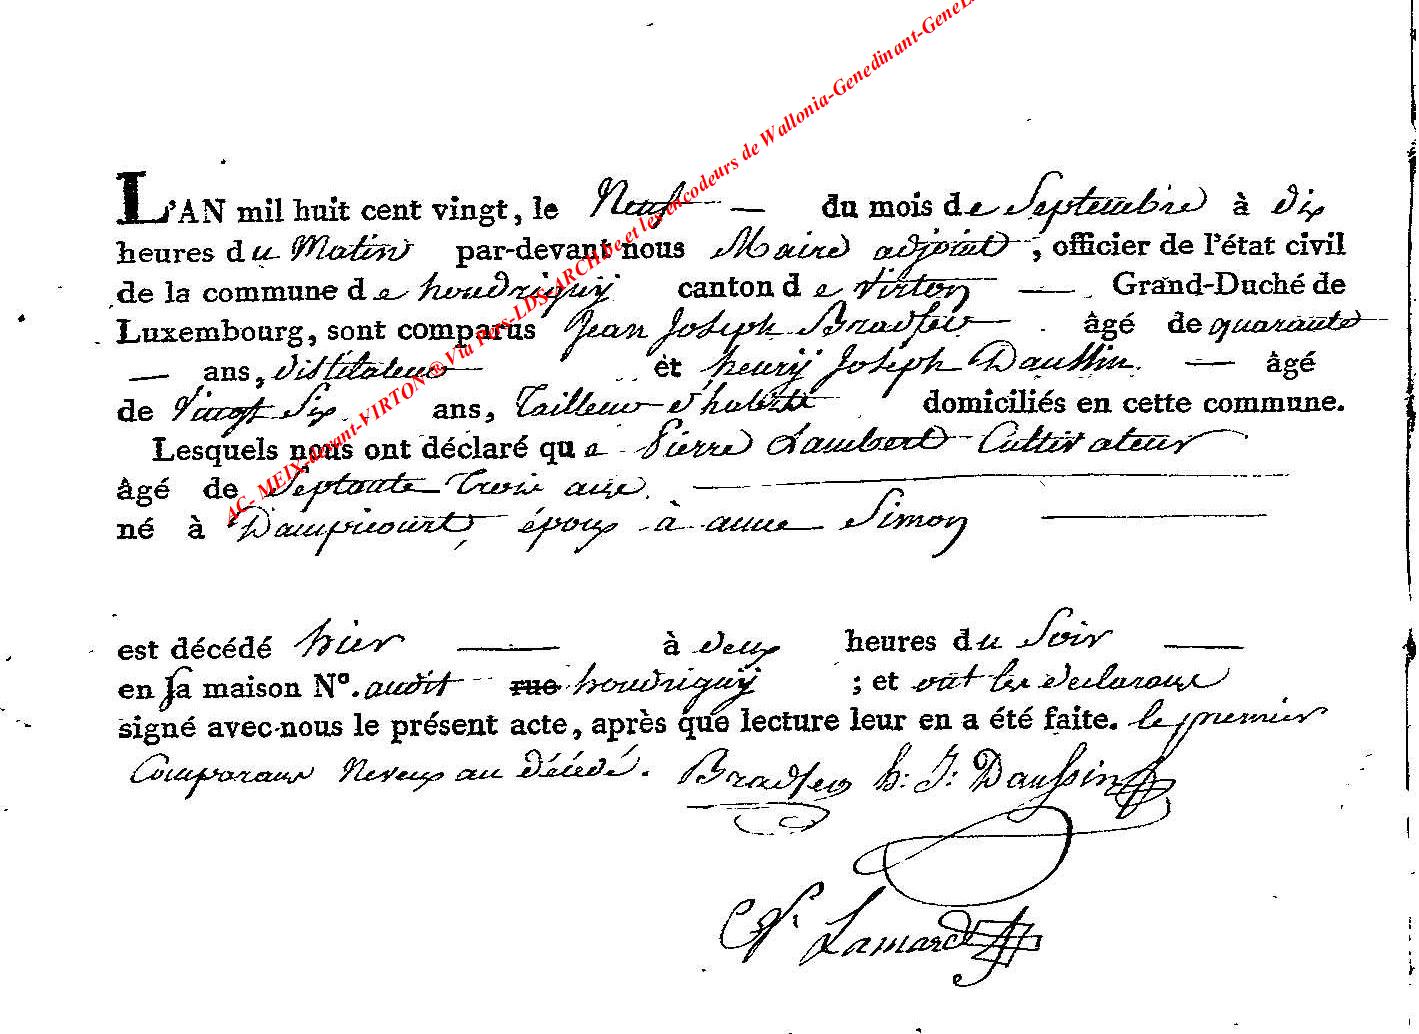 L'AN mil huit cent vingt, le Neuf — du mois de Septembre à dix
heures du Matin par-devant nous Maire adjoint, officier de l'état civil
de la commune de houdrigny canton de Virton — Grand-Duché de
Luxembourg, sont comparus Jean Joseph Bradfer âgé de quarante
— ans, institateur et henry Joseph Daussin — âgé
de Vingt Six ans, Tailleur d'habits domiciliés en cette commune.
Lesquels nous ont déclaré que Pierre Lambert Cultivateur
âgé de Septante Trois ans.
né à Dampicourt, époux à anne Simon
est décédé hier — à deux heures du Soir —
en Sa maison Nº. audit rue houdrigny ; et ont les declarans
signé avec-nous le présent acte, après que lecture leur en a été faite. le premier
Comparant Neveux au décédé. Bradfer h: J: Daussin
Lamarck
AC- MEIX-devant-VIRTON ® Via Pers-LDS-ARCHive et les encodeurs de Wallonia-Genedinant-GeneL